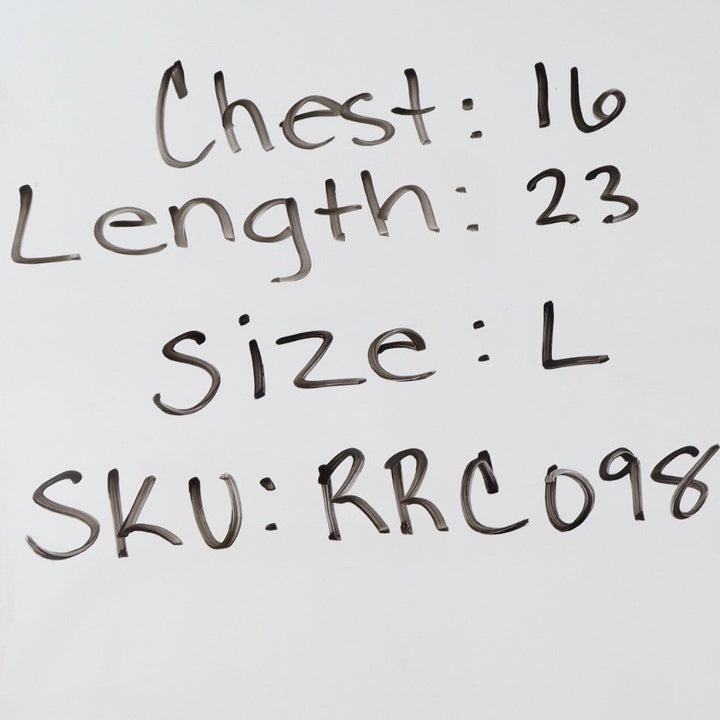 Chest: 16
Length: 23
Size: L
SKU: RRC098